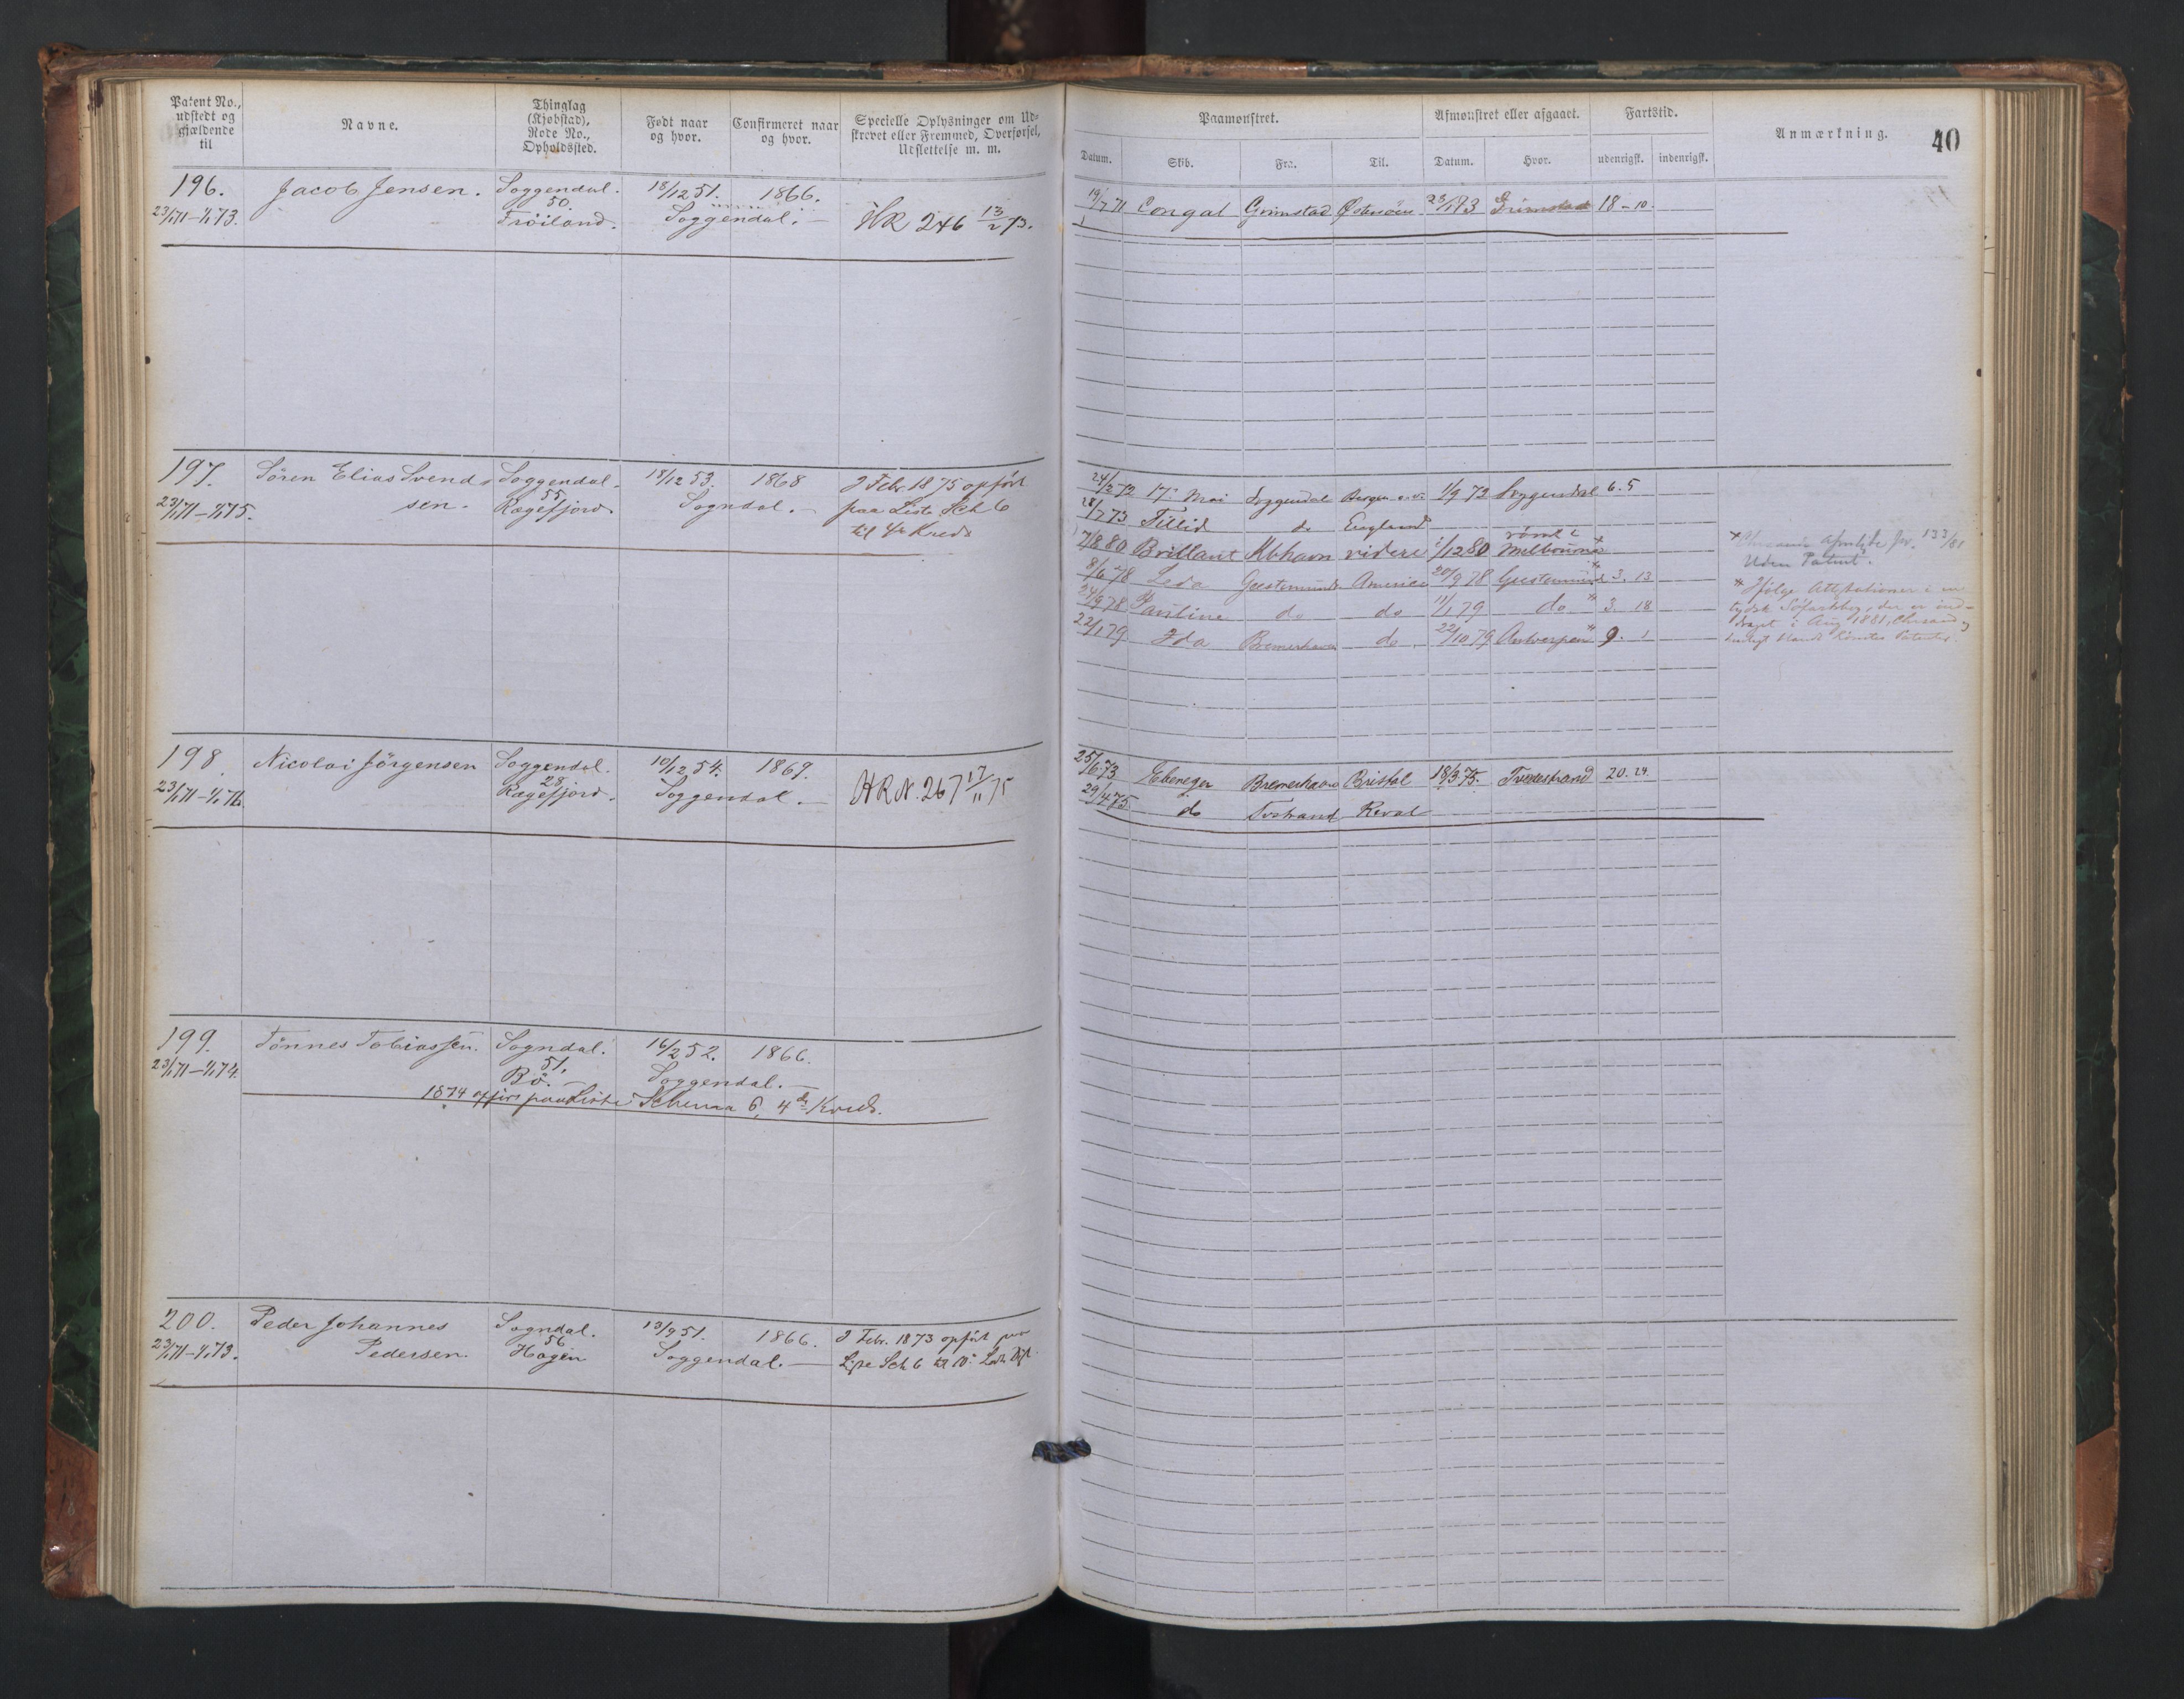 Patent No., udstedt og gjældende til
Navne.
Thinglag (Kjøbstad), Rode No., Opholdssted.
Født naar og hvor.
Confirmeret naar og hvor.
Specielle Oplysninger om Udskrevet eller Fremmed, Overførsel, Udslettelse m. m.
Paamønstret.
Afmønstret eller afgaaet.
Fartstid.
Anmærkning.
40
Datum.
Skib.
Fra.
Til.
Datum.
Hvor.
udenrigsk.
indenrigsk.
196. Jacob Jensen. Soggendal. 18/12 51. 1866.
23/1 71 – 1/1 73. 50. Frøiland. Soggendal. HR 246 13/2 73.
19/7 71 Congal Grimstad Grimstad 18 – 10.
197. Sören Elias Svend- Soggendal. 18/12 53. 1868 I Febr. 1875 opført
sen. 55. Sogndal. paa Liste Sch 6
23/1 71 – 1/1 75. Rægefjord til 4de Kreds
24/2 72 17de Mai Soggendal Bergen 1/9 72 Soggendal 6. 5
28/7 73 Tillid do England
7/8 80 Brillant Kbhavn videre 1/12 80 rømt i Melbourne
8/6 78 Leda Geestemünde America 20/9 78 Geestemünde 3. 13
24/9 78 Pauline do do 11/1 79 do 3. 18
22/1 79 Ida Bremerhaven do. 22/10 79 Antwerpen 9. 1
133/81
Uden Patent.
Ifølge Attestationer i en
tydsk Søfartsbog, der er ind-
i Aug 1881,
198. Nicolai Jörgensen Soggendal. 10/12 54. 1869.
23/1 71 – 1/1 76. 28. Rægefjord. Soggendal. HRN. 267 17/11 75
25/6 73 Ebenezer Bremerhaven Bristol 18/3 75. Tvedestrand 20. 24.
29/4 75. do Tvstrand Reval
199. Tönnes Tobiassen. Sogndal. 16/2 52. 1866.
23/1 71 – 1/1 74. 51. Bö. Soggendal.
1874 opført paa Liste Schema 6, 4de Kreds.
200. Peder Johannes Sogndal. 13/9 51. 1866. I Febr. 1873 opført paa
23/1 71 – 1/1 73. Pedersen. 56. Hagen Soggendal. Liste Sch 6